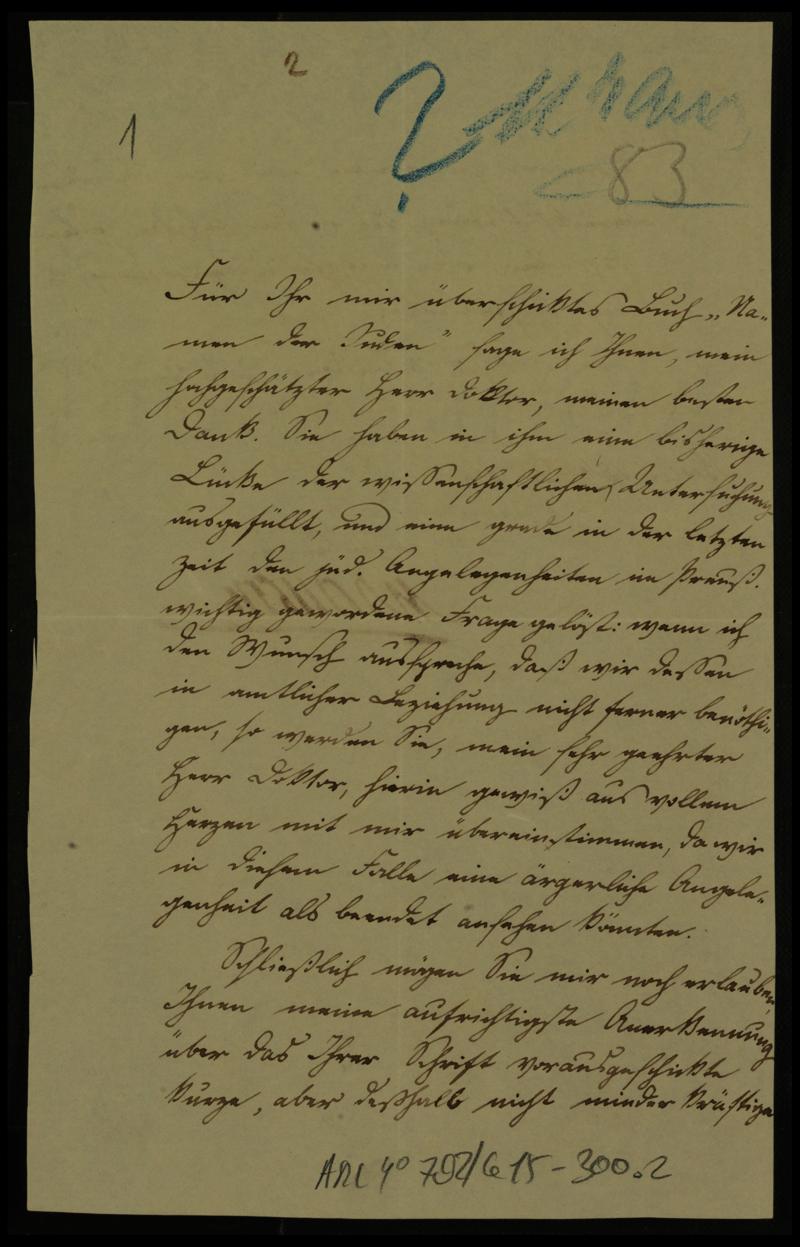 2
1
?
83
Für Ihr mir überschicktes Buch „Na-
men der Juden" sage ich Ihnen, mein
hochgeschätzter Herr Doktor, meinen besten
Dank. Sie haben in ihm eine bisherige
Lücke der wissenschaftlichen Untersuchung
ausgefüllt, und eine grade in der letzten
Zeit den jüd. Angelegenheiten im Preuß.
wichtig gewordene Frage gelöst: wenn ich
den Wunsch ausspreche, daß wir dessen
in amtlicher Beziehung nicht ferner benöthi-
gen, so werden Sie, mein sehr geehrter
Herr Doktor, hierin gewiß aus vollem
Herzen mit mir übereinstimmen, da wir
in diesem Falle eine ärgerliche Angele-
genheit als beendet ansehen könnten.
Schließlich mögen Sie mir noch erlauben,
Ihnen meine aufrichtigste Anerkennung
über das Ihrer Schrift vorausgeschickte
kurze, aber deßhalb nicht minder kräftige
ARC 4° 792/G15-300.2